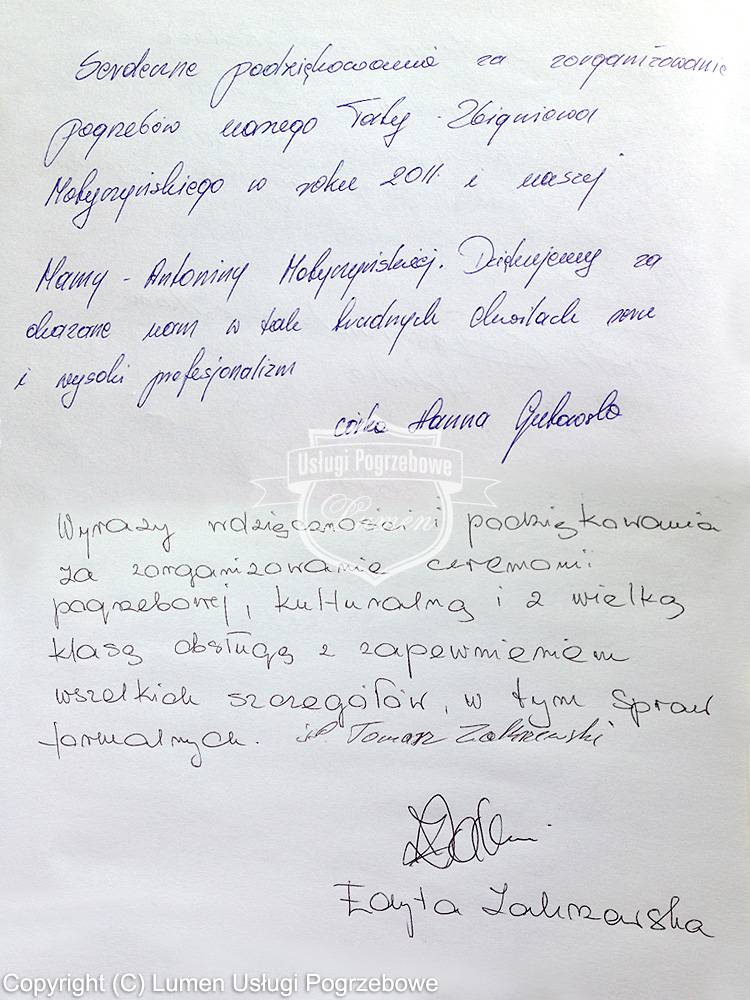 Serdeczne podziękowania za zorganizowanie
pogrzebów naszego Taty - Zbigniewa
Motyczyńskiego w roku 2011 i naszej
Mamy - Antoniny Motyczyńskiej. Dziękujemy za
okazane nam w tak trudnych chwilach
i wysoki profesjonalizm
córka Hanna
Usługi Pogrzebowe
Lumen
Wyrazy wdzięczności i podziękowania
za zorganizowanie ceremoni
pogrzebowej, kulturalną i z wielką
klasą obsługą z zapewnieniem
wszelkich szczegółów, w tym spraw
formalnych. śp. Tomasz Zakrzewski
Edyta Zakrzewska
Copyright (C) Lumen Usługi Pogrzebowe